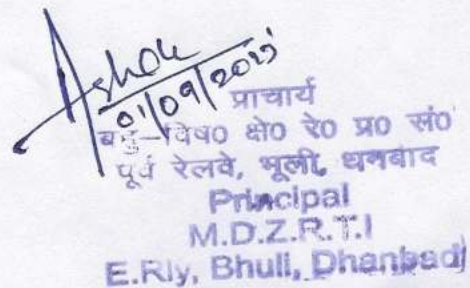 Ashok
01/09/2015
प्राचार्य
बहु-विष० क्षे० रे० प्र० सं०
पूर्व रेलवे, भूली, धनबाद
Principal
M.D.Z.R.T.I
E.Rly, Bhuli, Dhanbad